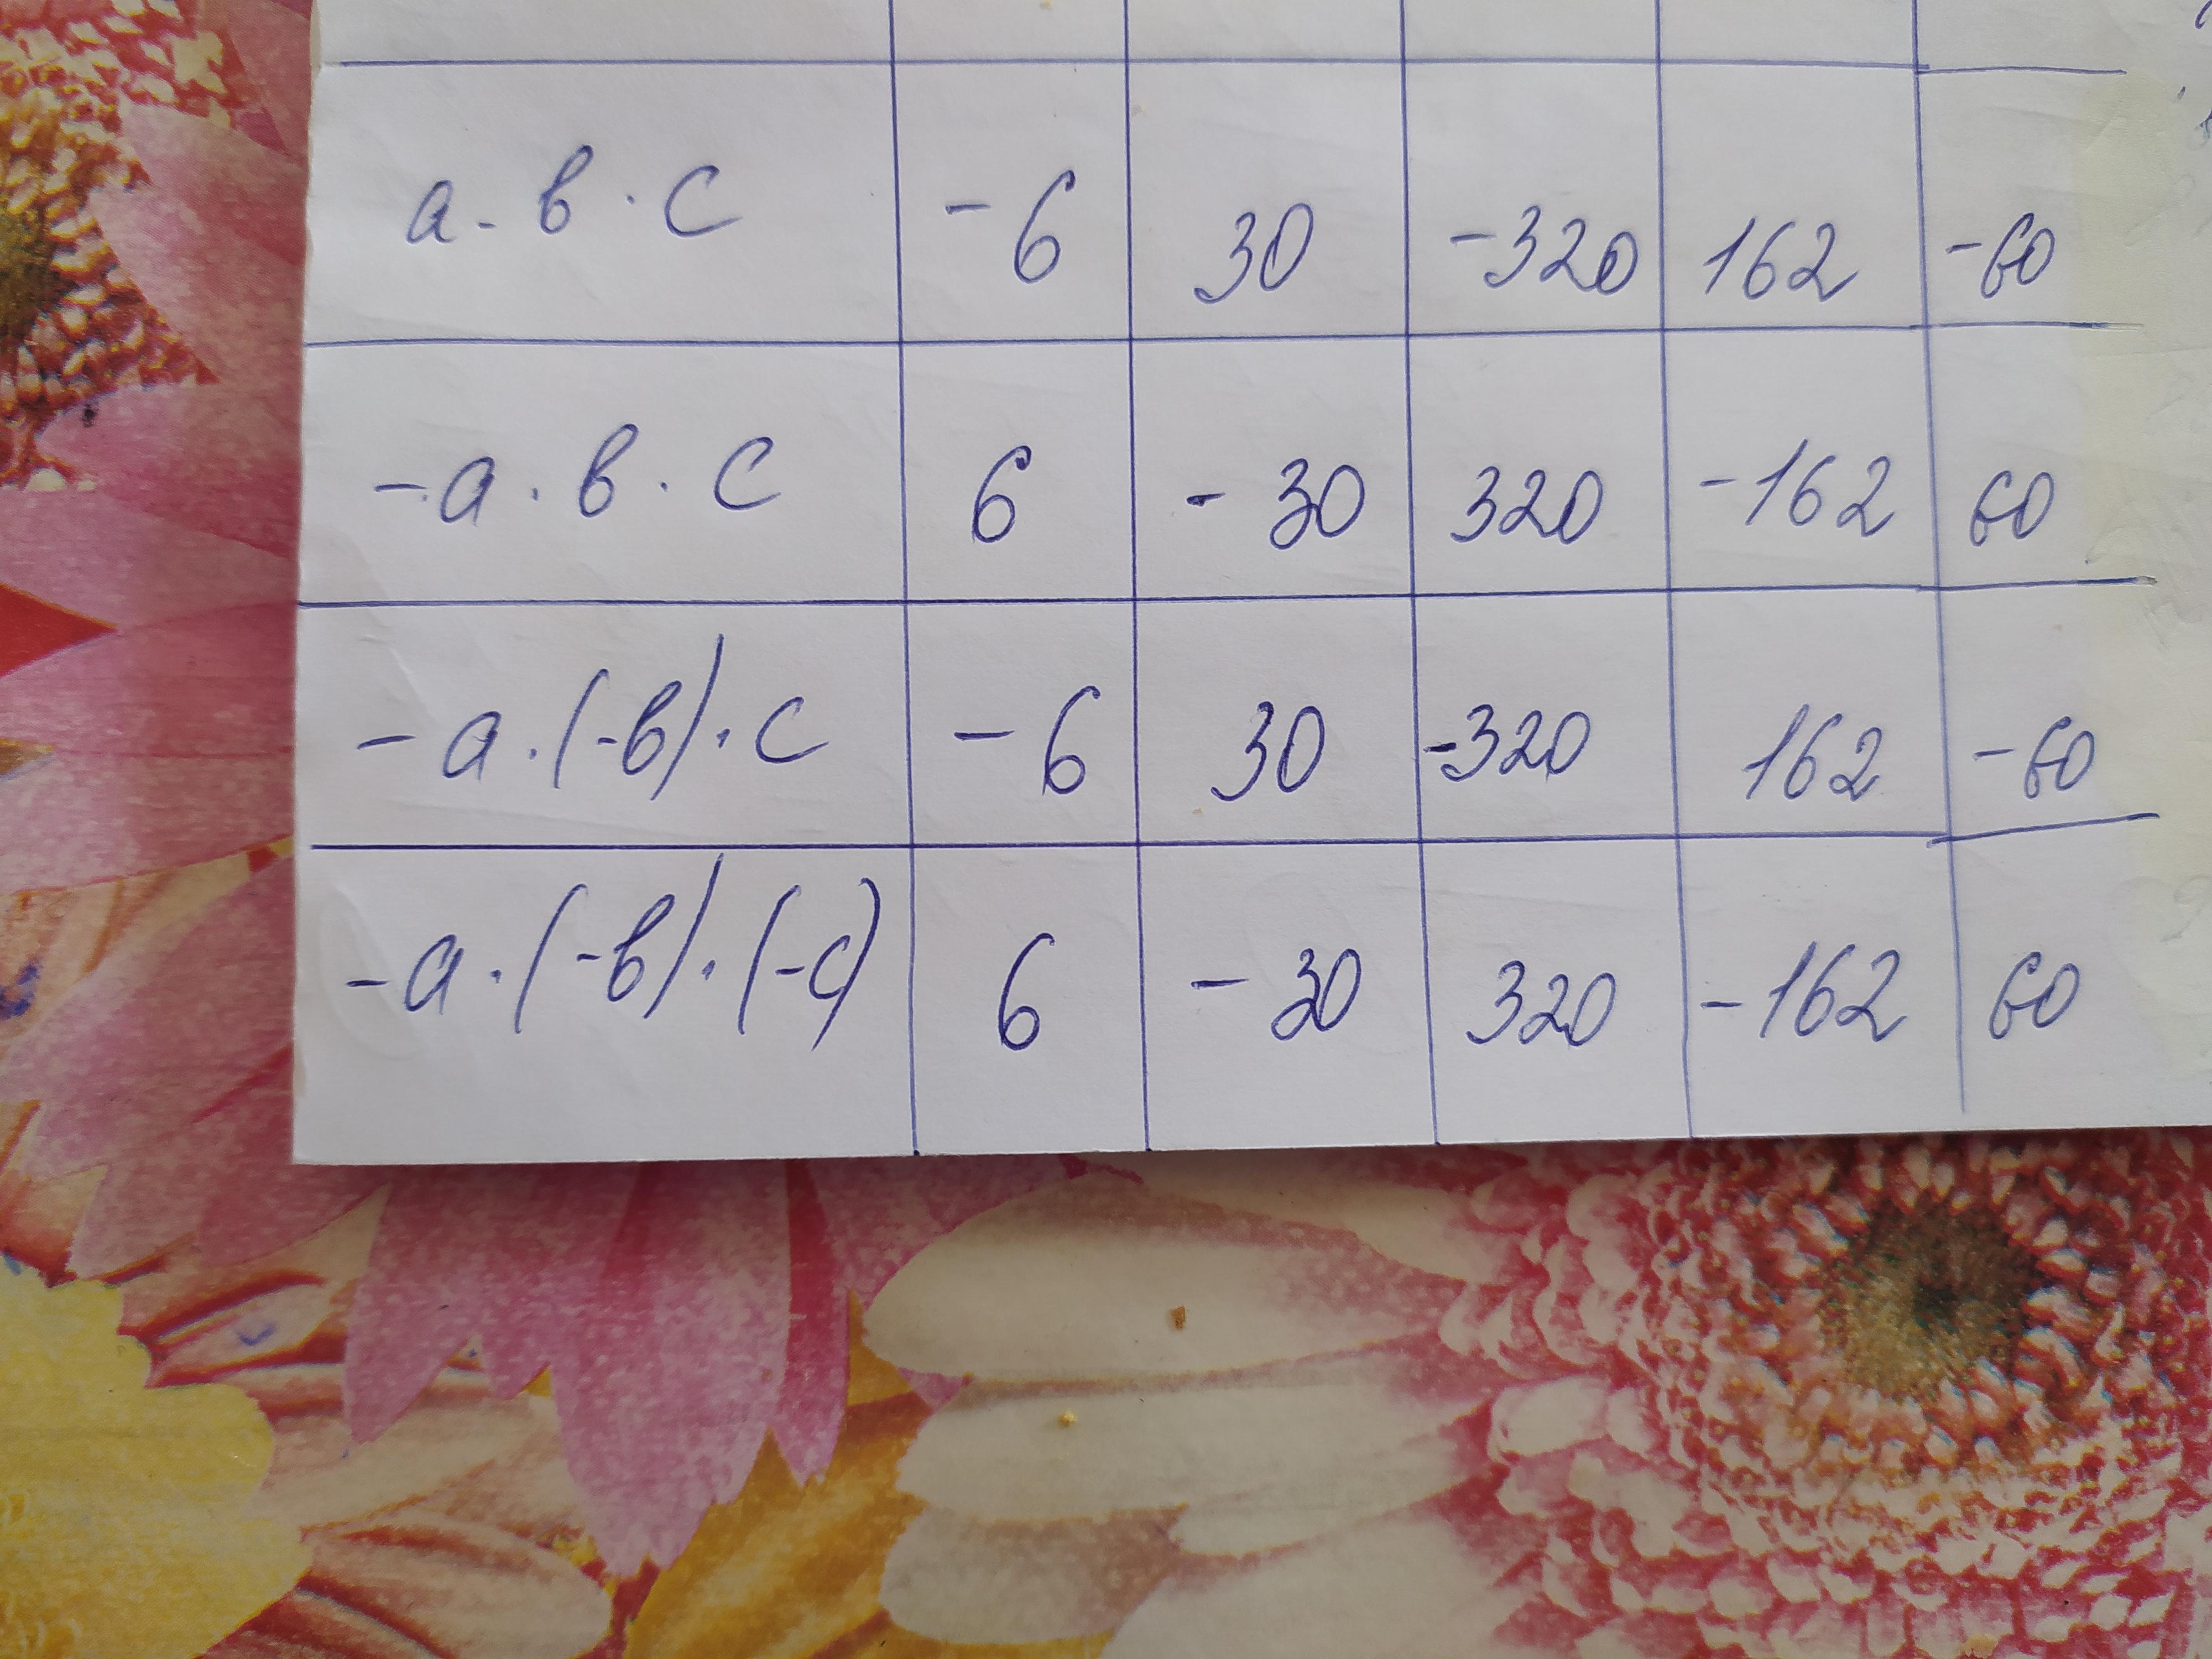 а · в · с -6 30 -320 162 -60
-а · в · с 6 -30 320 -162 60
-а · (-в) · с -6 30 -320 162 -60
-а · (-в) · (-с) 6 -30 320 -162 60